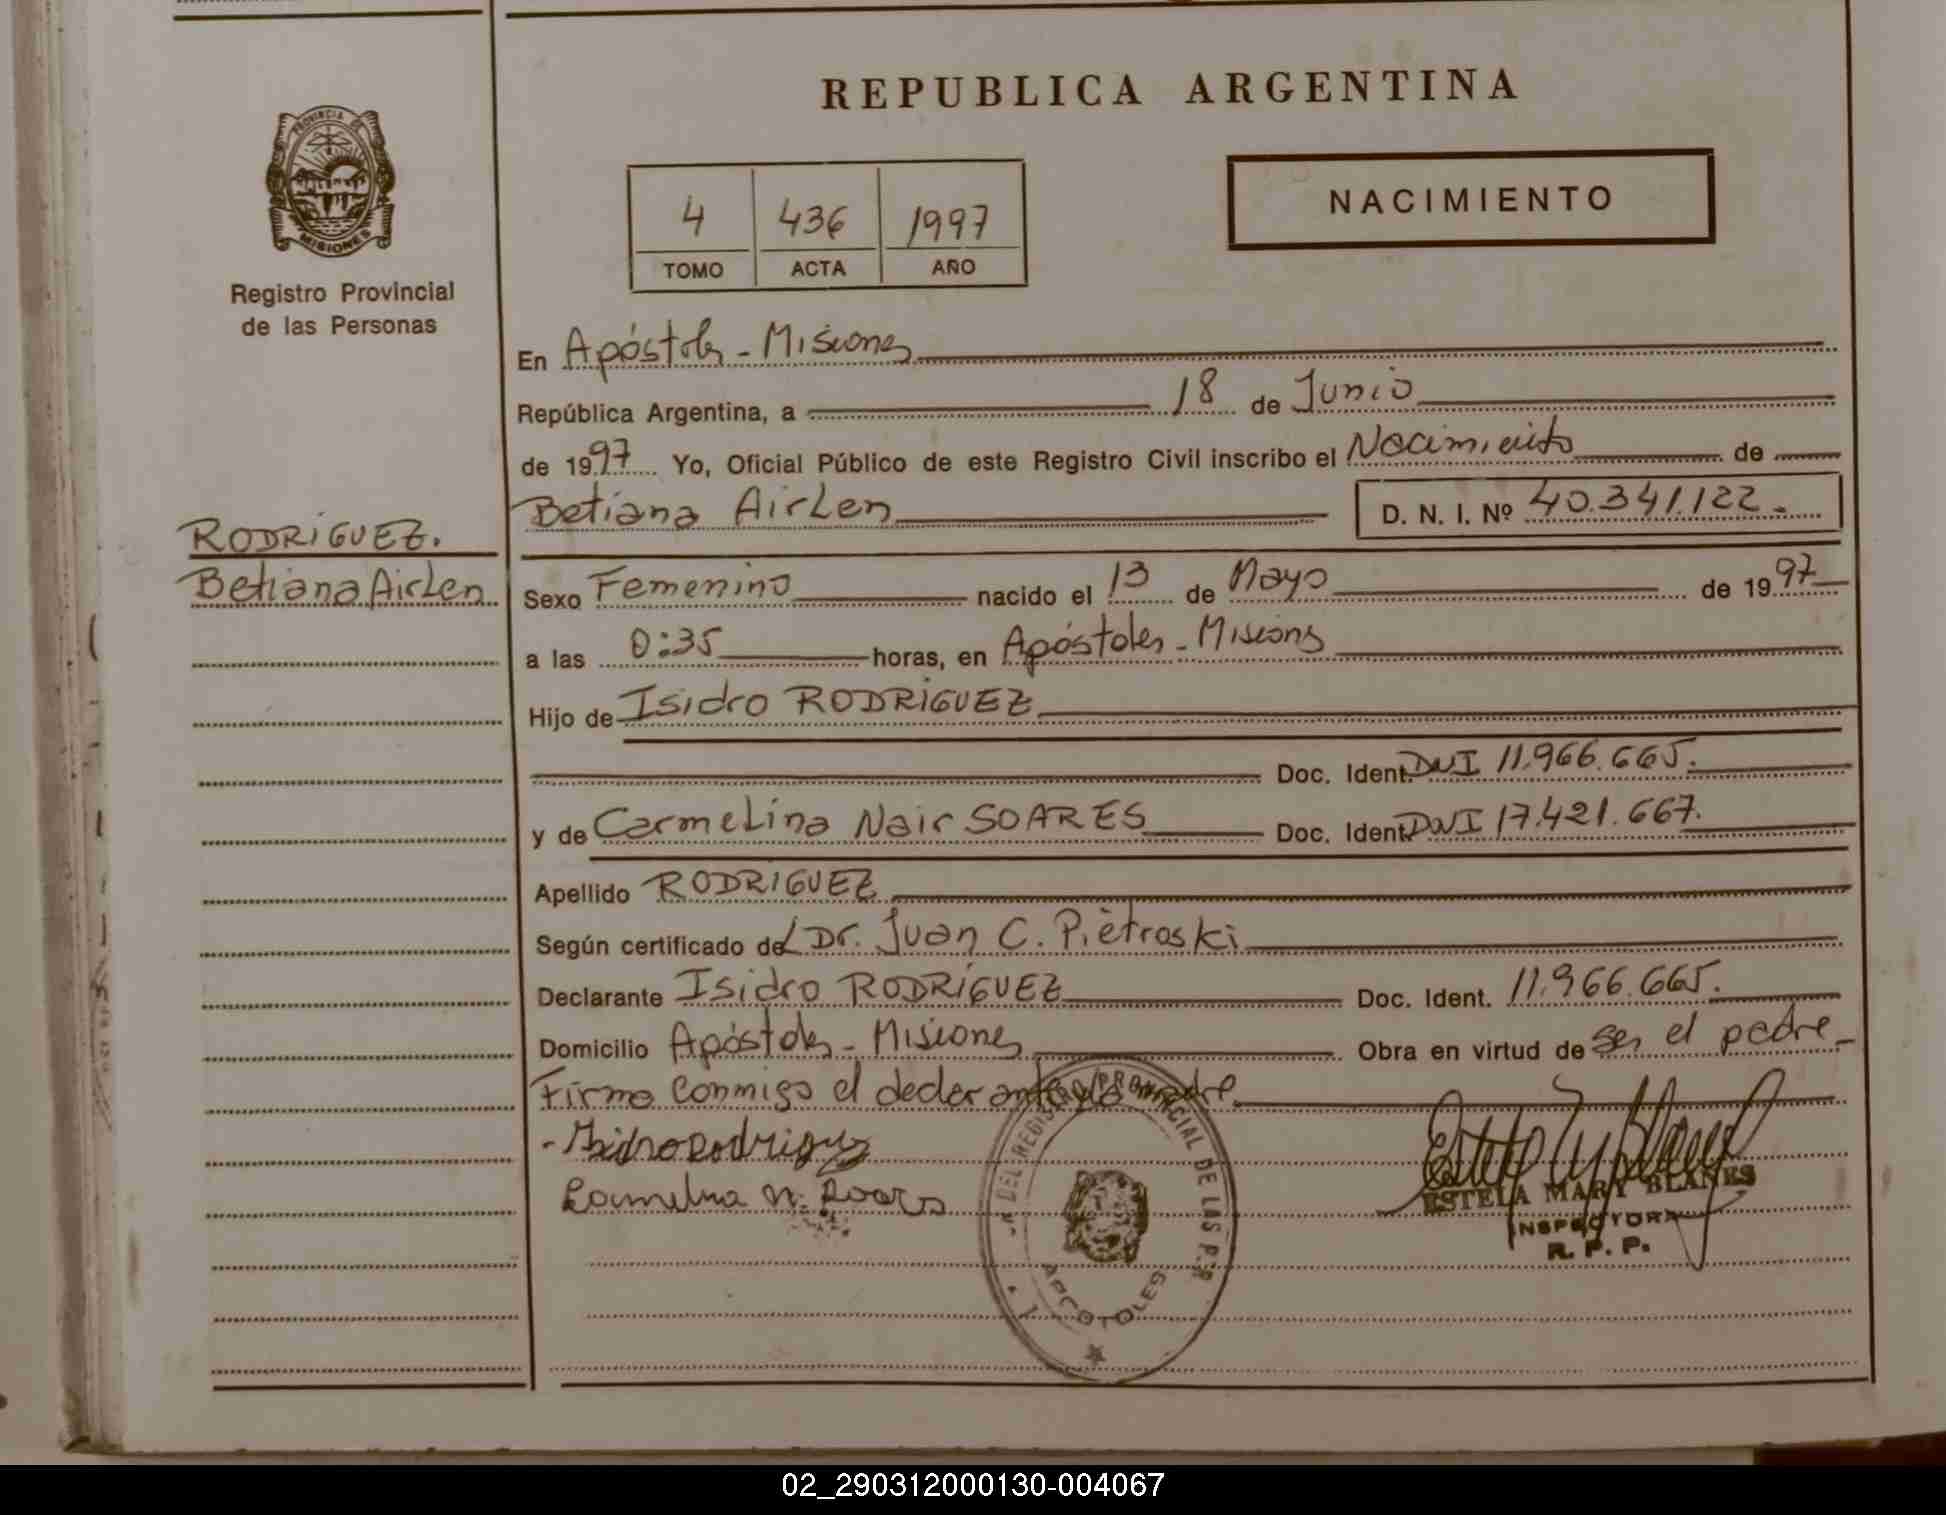 REPUBLICA ARGENTINA
PROVINCIA DE
MISIONES
Registro Provincial
de las Personas
4 436 1997
TOMO ACTA AÑO
NACIMIENTO
En Apóstoles - Misiones
República Argentina, a 18 de Junio
de 1997 Yo, Oficial Público de este Registro Civil inscribo el Nacimiento de
Betiana AirLen D. N. I. Nº 40.341.122.-
RODRíGUEZ.
Betiana AirLen
Sexo Femenino nacido el 13 de Mayo de 1997
a las 0:35 horas, en Apóstoles - Misiones
Hijo de Isidro RODRíGUEZ
Doc. Ident. DNI 11.966.665.
y de CarmeLina Nair SOARES Doc. Ident. DNI 17.421.667.
Apellido RODRIGUEZ
Según certificado del Dr. Juan C. Piètroski
Declarante Isidro RODRíGUEZ Doc. Ident. 11.966.665.
Domicilio Apóstoles - Misiones Obra en virtud de ser el padre -
Firma conmigo el declarante y la madre
- Isidro Rodriguez
Carmelina N. Soares
DEL REGISTRO PROVINCIAL DE LAS PER
APOSTOLES
ESTELA MARY BLANES
INSPECTORA
R. P. P.
02_290312000130-004067